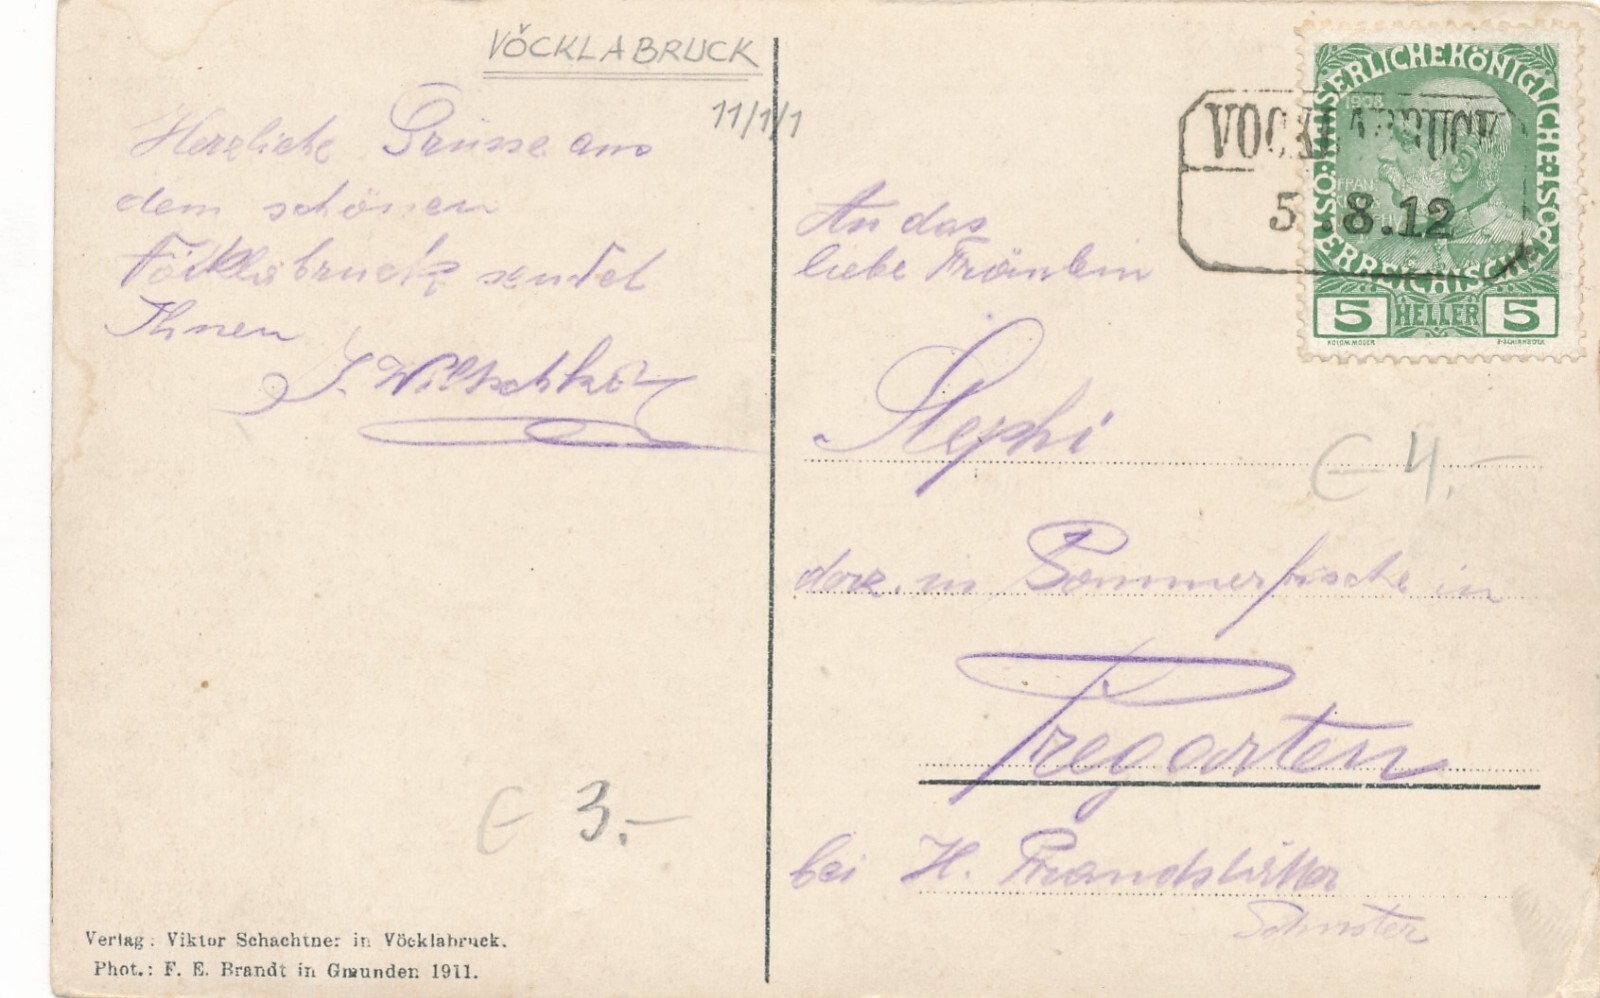 VÖCKLABRUCK
11/1/1
Herzliche Grüsse aus
dem schönen
Vöcklabruck sendet
Ihnen
J. Wiltschko
€ 3.-
Verlag: Viktor Schachtner in Vöcklabruck.
Phot.: F. E. Brandt in Gmunden 1911.
VÖCKLABRUCK
5.8.12
KAISERLICHE KÖNIGLICHE
ÖSTERREICHISCHE POST
1908
5 HELLER 5
An das
liebe Fräulein
Stephi
€ 4.-
derz. in Sommerfrische in
Pregarten
bei H. Brandstätter
Schuster